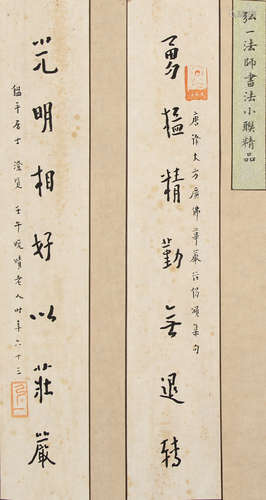 弘一法師書法小聯精品
勇猛精勤無退轉
唐譯大方廣佛華嚴經偈頌集句
光明相好以莊嚴
居士 澄覽 壬午 晚晴老人時年六十三